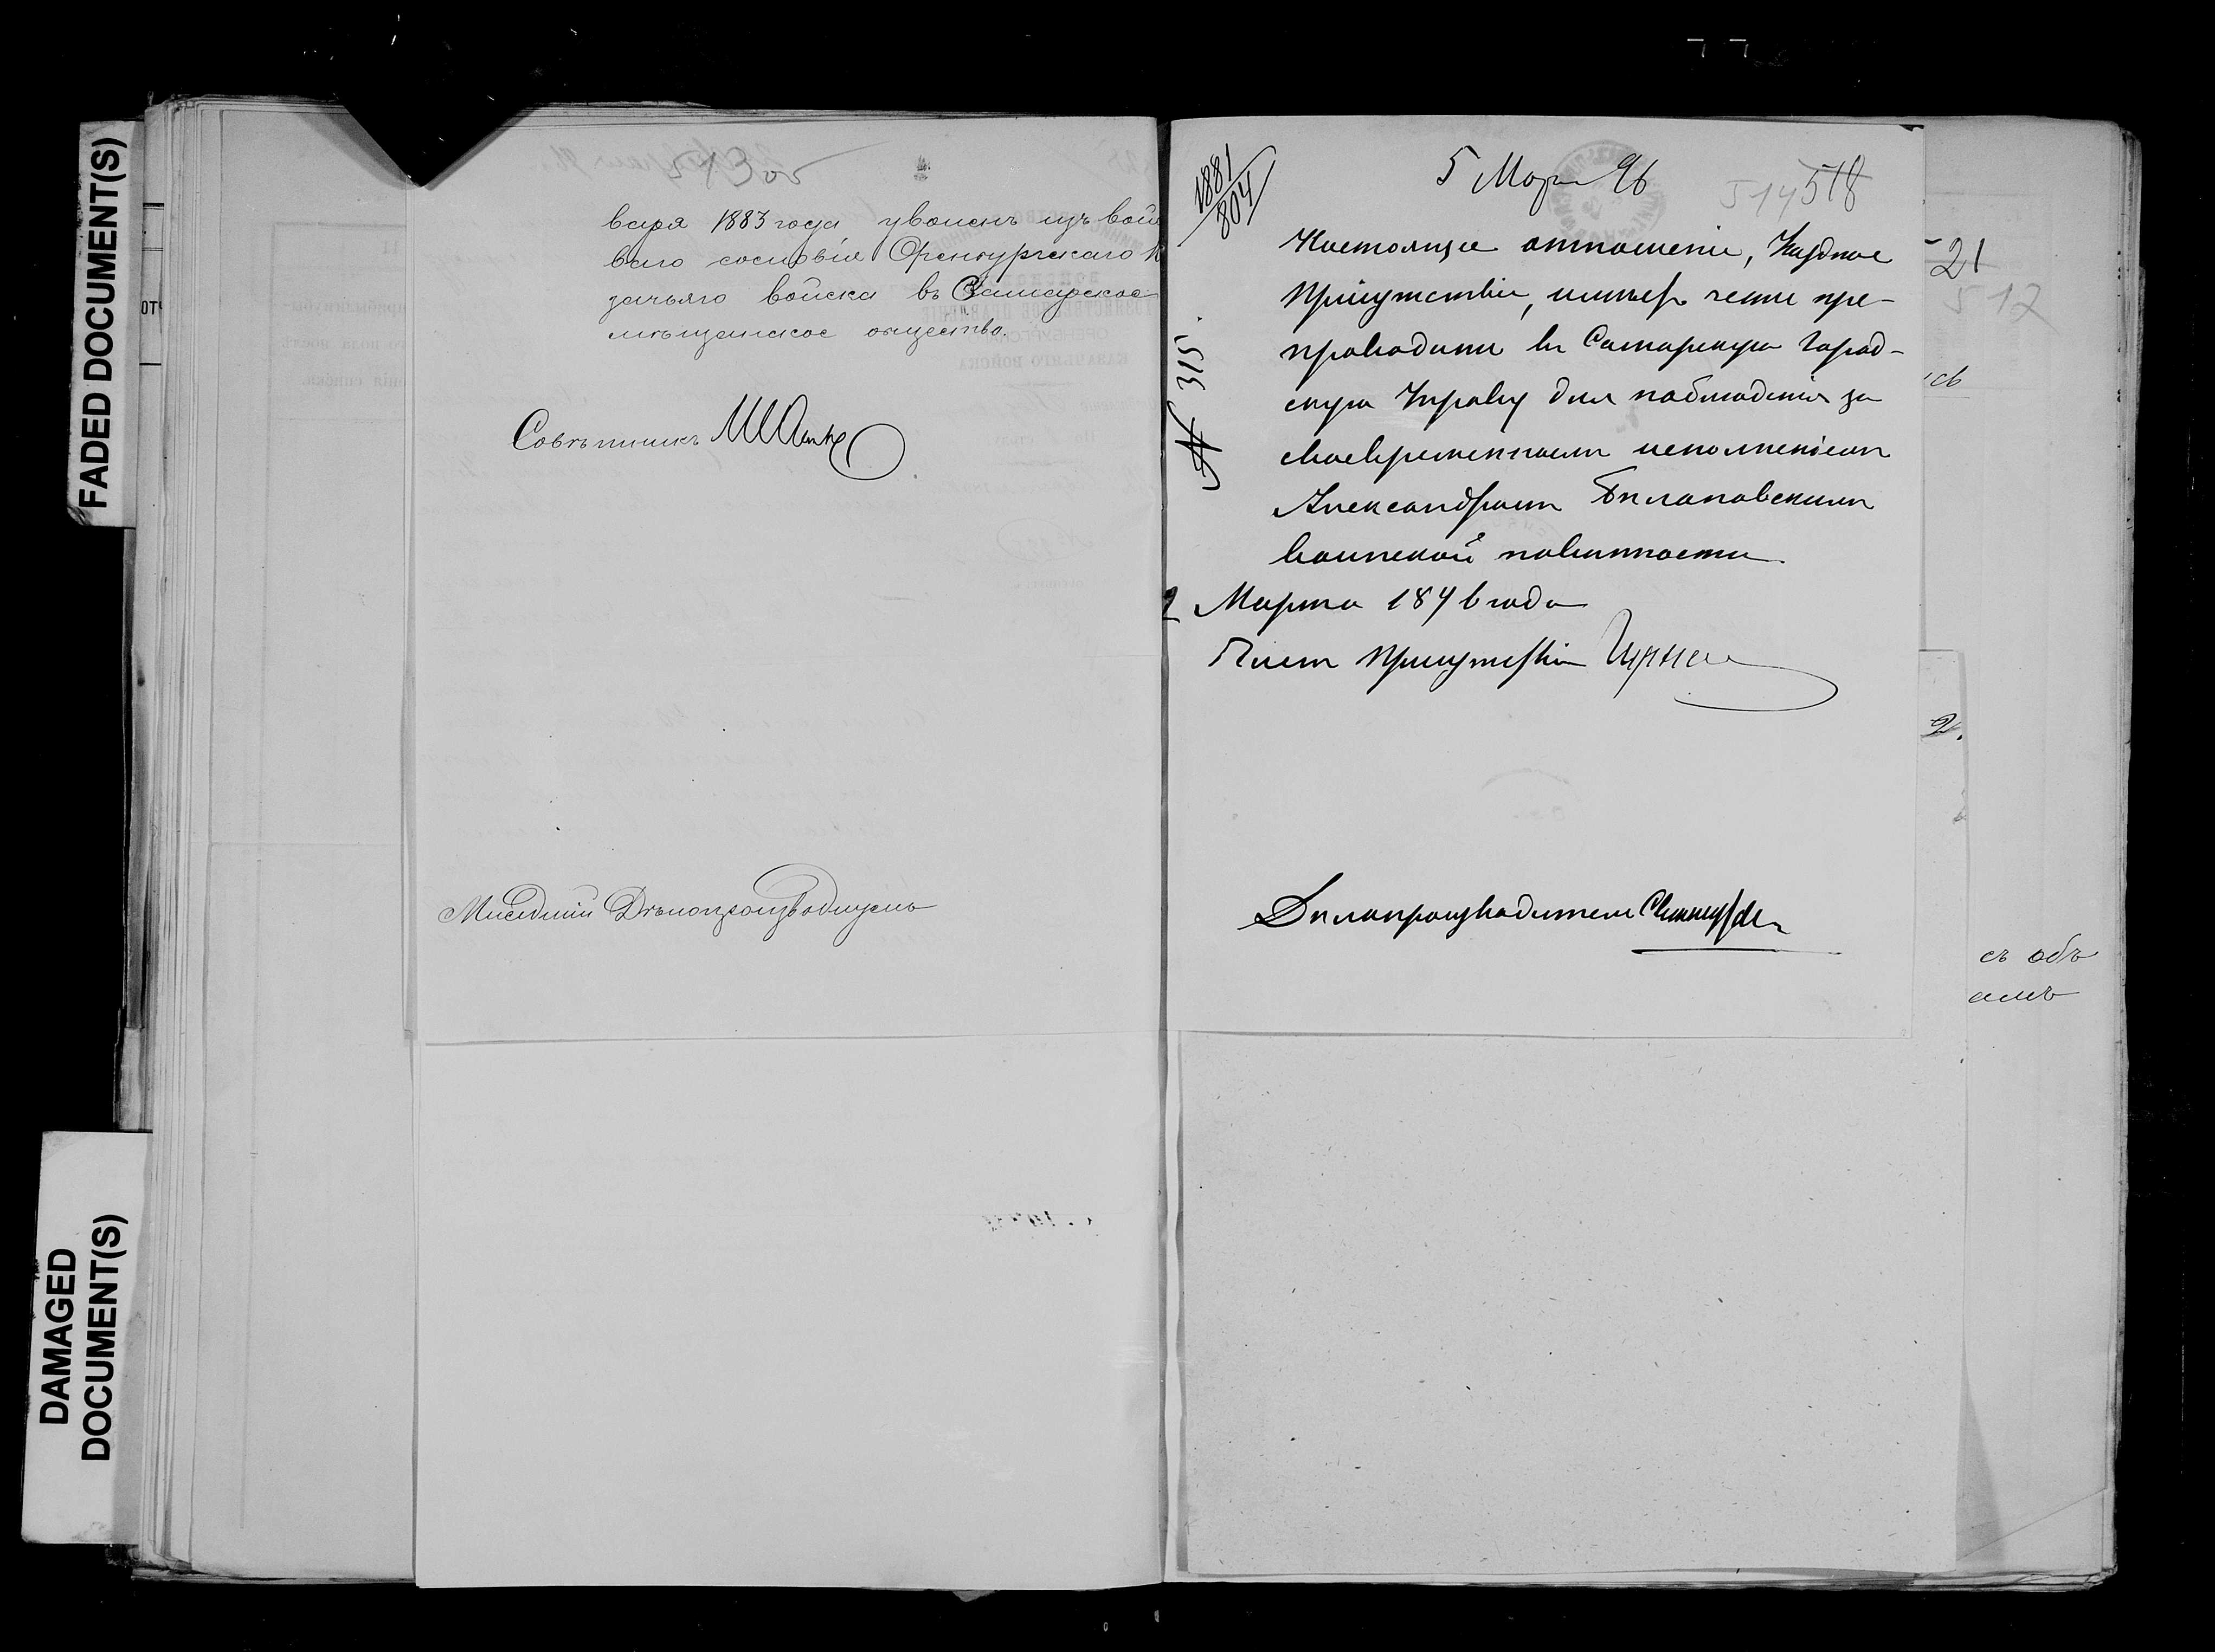 FADED DOCUMENT(S)
DAMAGED
DOCUMENT(S)
513 об
варя 1883 года уволенъ изъ войс
ваго сословія Оренбургскаго К
зачьяго войска въ Самарское
мѣщанское общество.
Совѣтникъ
Младшій Дѣлопроизводитель
1881
804
5 Мар 96
514 518
№ 315.
Настоящее отношеніе, Уѣздное
Присутствіе, имѣетъ честь пре-
проводить въ Самарскую Город-
скую Управу для наблюденія за
своевременнымъ исполненіемъ
Александромъ Бѣлановскимъ
воинской повинности
2 Марта 1896 года
Присутствія
Дѣлопроизводитель
21
512
сь
2.
съ объ
амъ